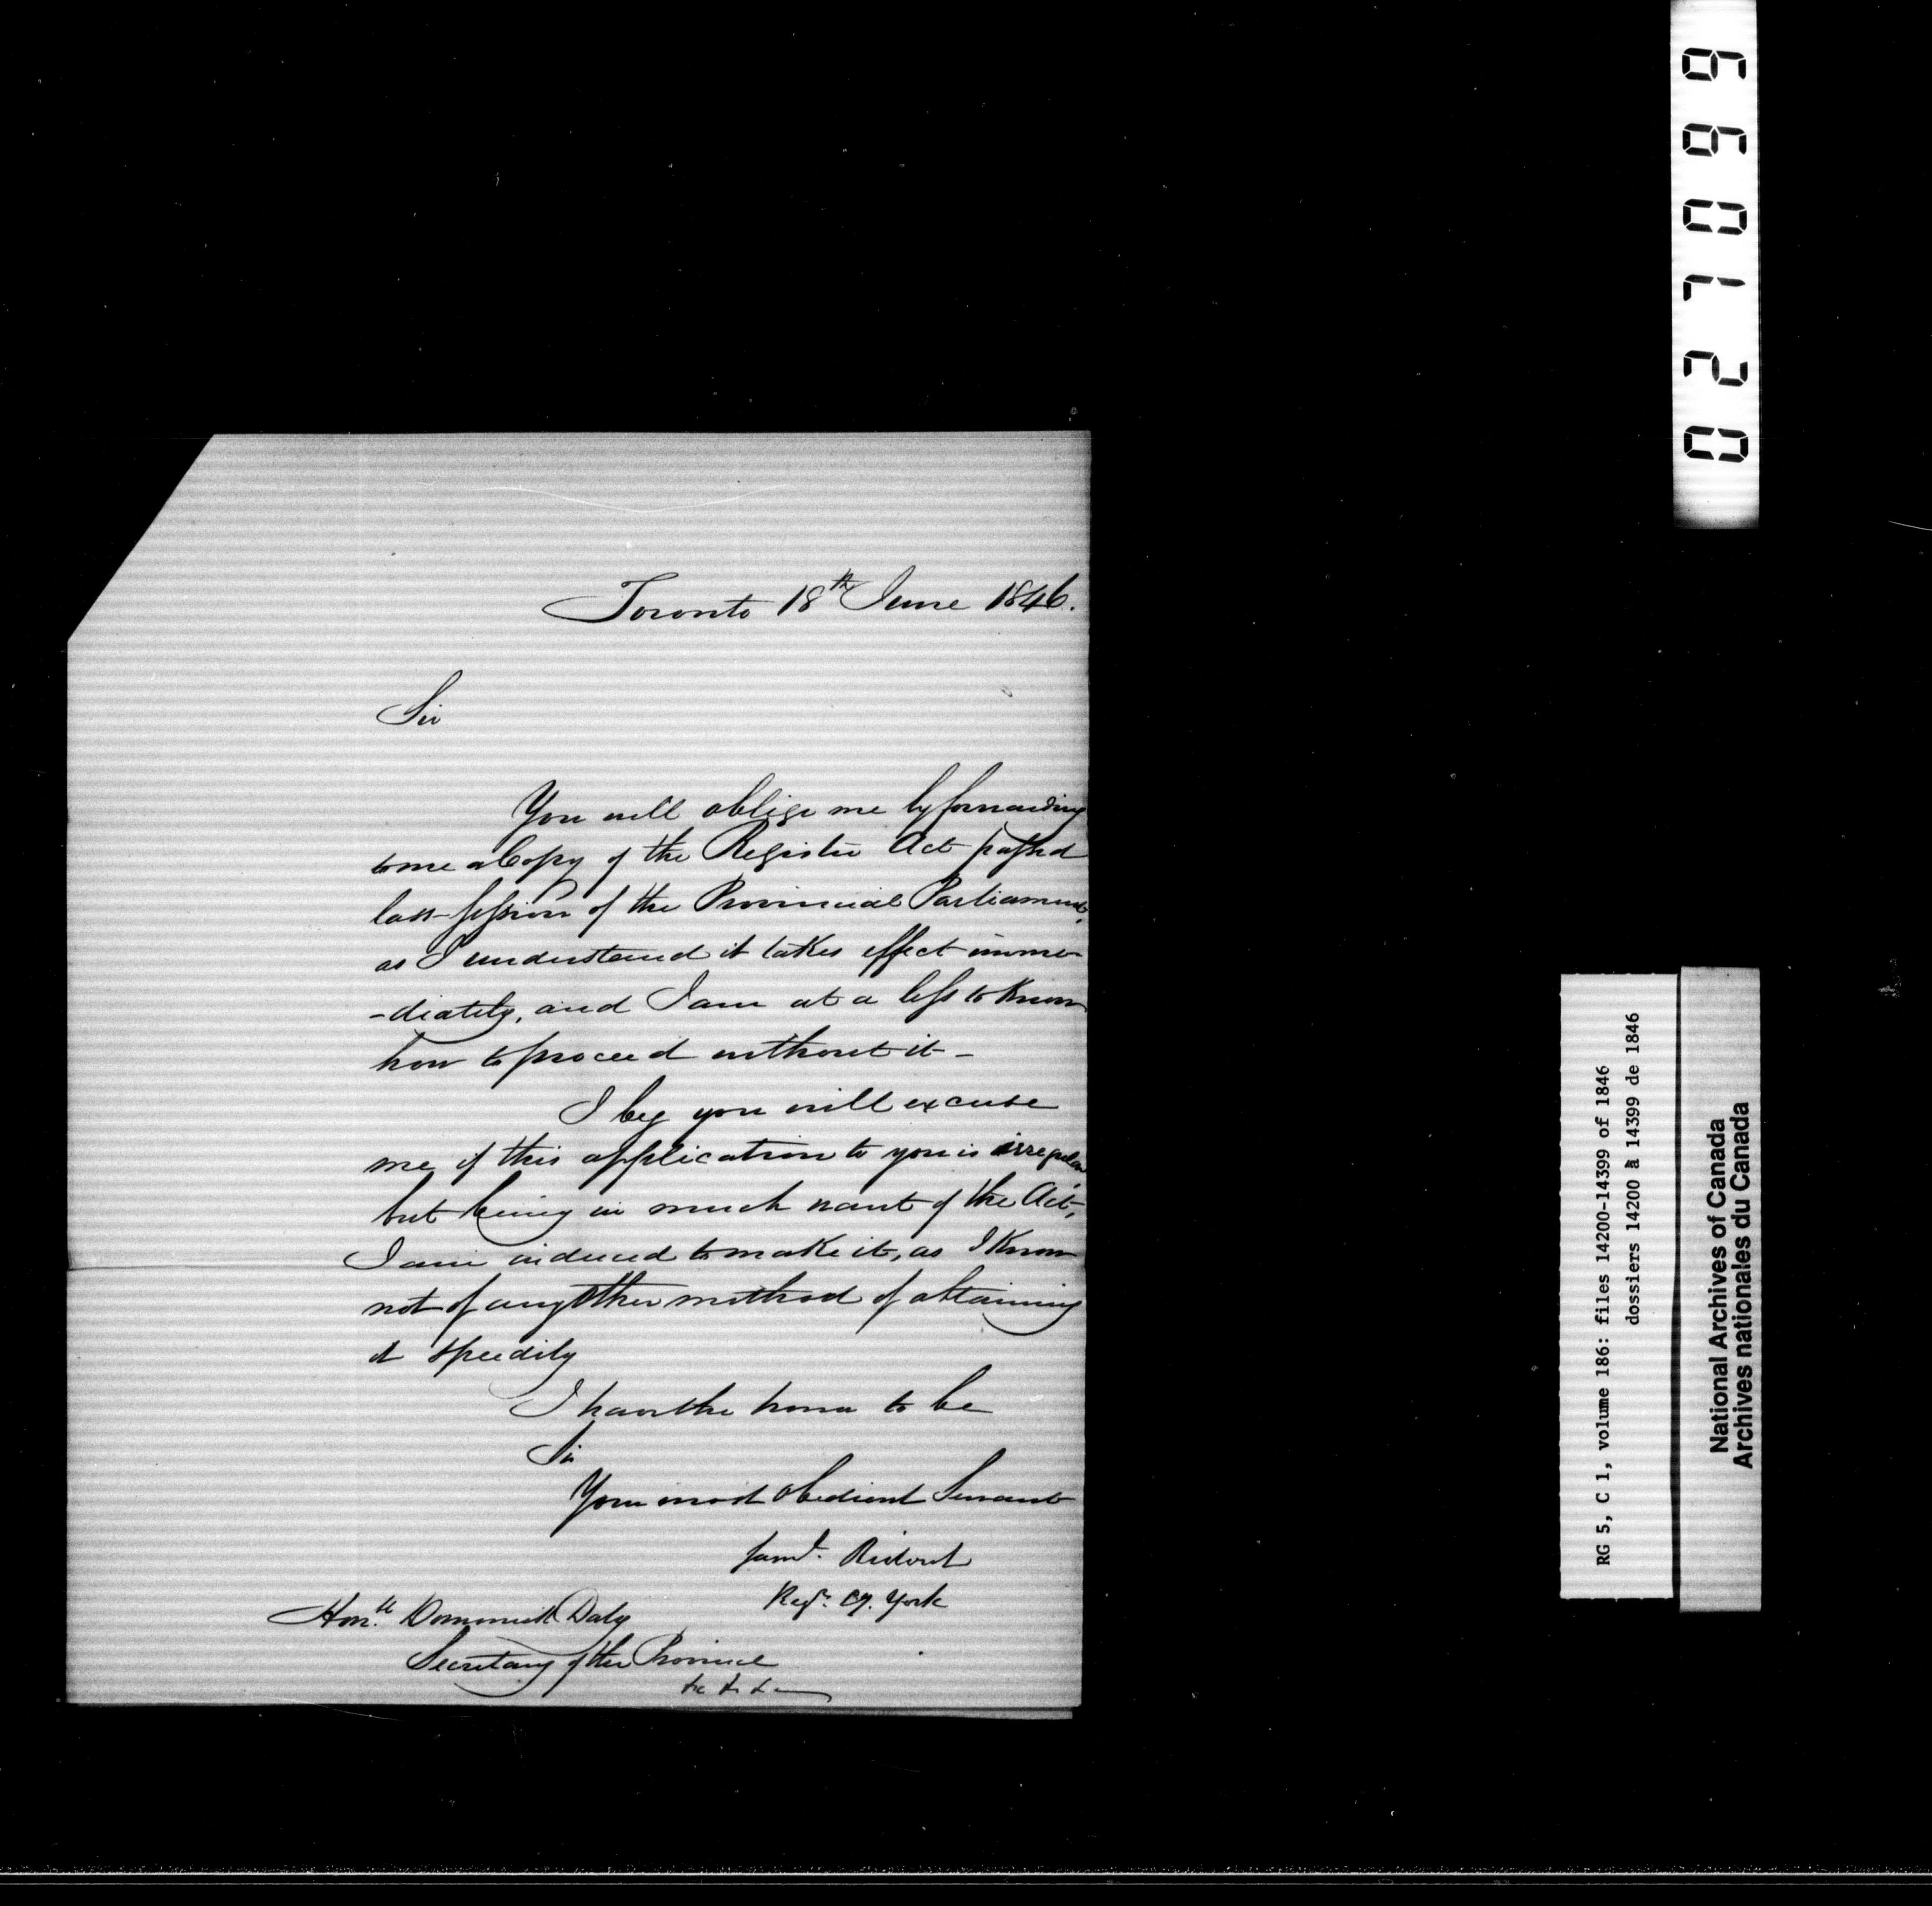 Toronto 18th June 1846.
Sir
You will oblige me by forwarding
to me a Copy of the Register Act passed
last Session of the Provincial Parliament,
as I understand it takes effect imme-
-diately, and I am at a loss to know
how to proceed without it -
I beg you will excuse
me if this application to you is irregular
but being in much want of the Act,
I am induced to make it, as I know
not of any other method of obtaining
it speedily
I have the honor to be
Sir
Your most obedient Servant
Saml. Ridout
Regr. Cy. York
Honble Dominick Daly
Secretary of the Province
&c &c &c
021099
RG 5, C 1, volume 186: files 14200-14399 of 1846
dossiers 14200 à 14399 de 1846
National Archives of Canada
Archives nationales du Canada